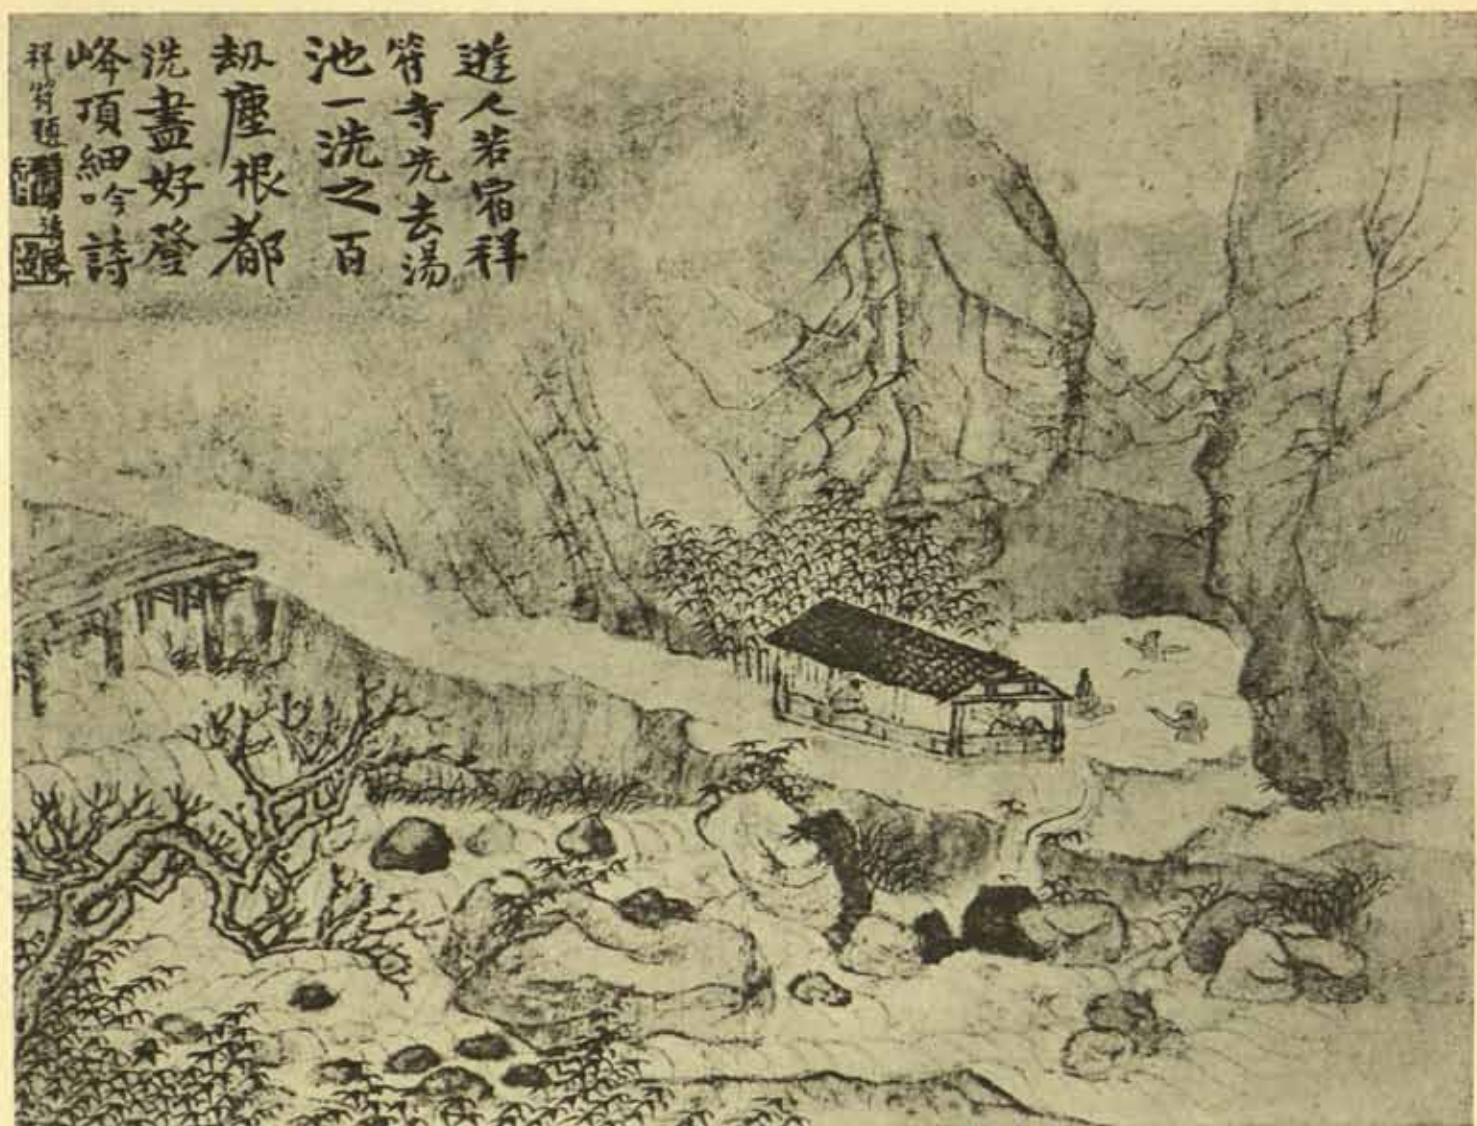 遊人若宿祥
符寺先去湯
池一洗之百
劫塵根都
洗盡好登
峰頂細吟詩
祥符題